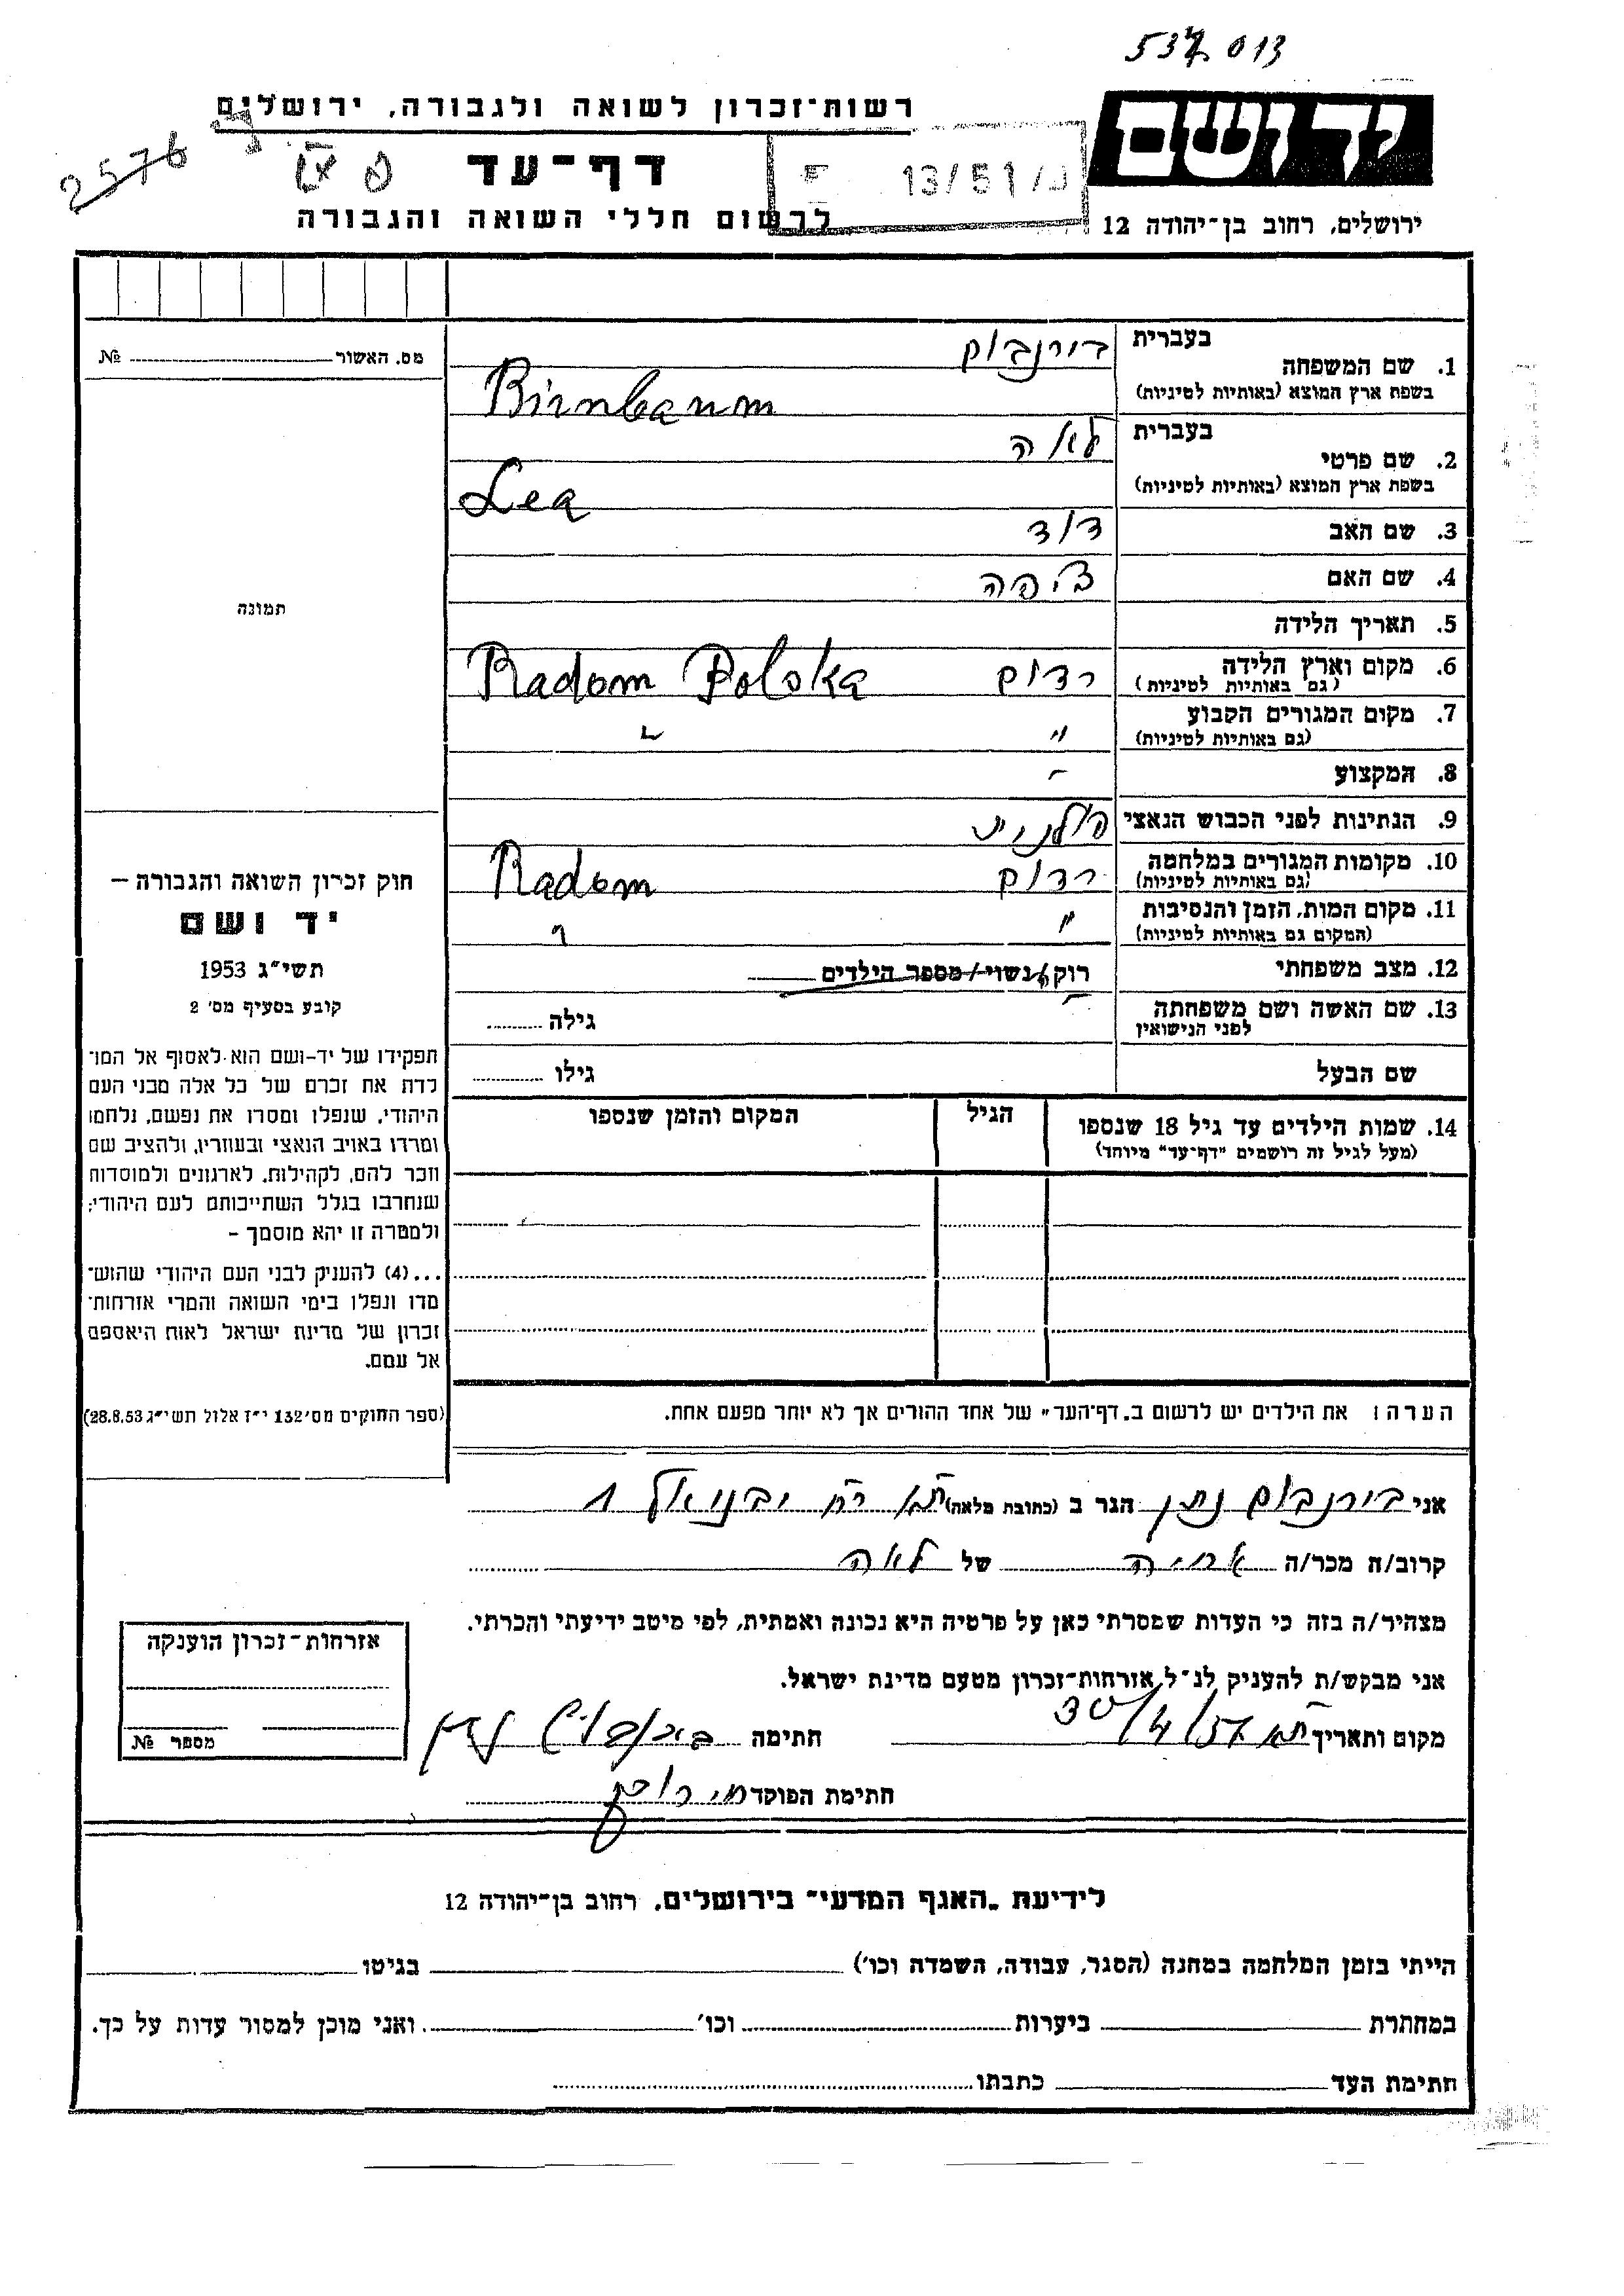 537013
רשות־זכרון לשואה ולגבורה, ירושלים
יד ושם
2576
דף־עד
13/51
לרשום חללי השואה והגבורה
ירושלים, רחוב בן־יהודה 12
מס. האשור №
1. שם המשפחה
בעברית בירנבוים
בשפת ארץ המוצא (באותיות לטיניות) Birnbaum
2. שם פרטי
בעברית לאה
בשפת ארץ המוצא (באותיות לטיניות) Lea
3. שם האב דוד
4. שם האם ציפה
תמונה
5. תאריך הלידה
6. מקום וארץ הלידה רדום Radom Polska
(גם באותיות לטיניות)
7. מקום המגורים הקבוע " "
(גם באותיות לטיניות)
8. המקצוע -
9. הנתינות לפני הכבוש הנאצי פולנית
10. מקומות המגורים במלחמה רדום Radom
(גם באותיות לטיניות)
11. מקום המות, הזמן והנסיבות " "
(המקום גם באותיות לטיניות)
12. מצב משפחתי רוק/נשוי/מספר הילדים
13. שם האשה ושם משפחתה - גילה
לפני הנישואין
שם הבעל גילו
חוק זכרון השואה והגבורה –
יד ושם
תשי״ג 1953
קובע בסעיף מס׳ 2
תפקידו של יד-ושם הוא לאסוף אל המו־
לדת את זכרם של כל אלה מבני העם
היהודי, שנפלו ומסרו את נפשם, נלחמו
ומרדו באויב הנאצי ובעוזריו, ולהציב שם
וזכר להם, לקהילות, לארגונים ולמוסדות
שנחרבו בגלל השתייכותם לעם היהודי;
ולמטרה זו יהא מוסמך –
...(4) להעניק לבני העם היהודי שהוש־
מדו ונפלו בימי השואה והמרי אזרחות־
זכרון של מדינת ישראל לאות היאספם
אל עמם.
(ספר החוקים מס׳ 132 י״ז אלול תשי״ג 28.8.53)
14. שמות הילדים עד גיל 18 שנספו הגיל המקום והזמן שנספו
(מעל לגיל זה רושמים "דף־עד" מיוחד)
הערה: את הילדים יש לרשום ב„דף־העד" של אחד ההורים אך לא יותר מפעם אחת.
אני בירנבוים נתן הגר ב (כתובת מלאה) ת״א רח
קרוב/ה מכר/ה של לאה
מצהיר/ה בזה כי העדות שמסרתי כאן על פרטיה היא נכונה ואמתית, לפי מיטב ידיעתי והכרתי.
אני מבקש/ת להעניק לנ״ל אזרחות־זכרון מטעם מדינת ישראל.
מקום ותאריך ת״א 30/4/57 חתימה בירנבוים נתן
חתימת הפוקד
אזרחות־זכרון הוענקה
מספר №
לידיעת „האגף המדעי״ בירושלים, רחוב בן־יהודה 12
הייתי בזמן המלחמה במחנה (הסגר, עבודה, השמדה וכו׳) בגיטו
במחתרת ביערות וכו׳ ואני מוכן למסור עדות על כך.
חתימת העד כתבתו